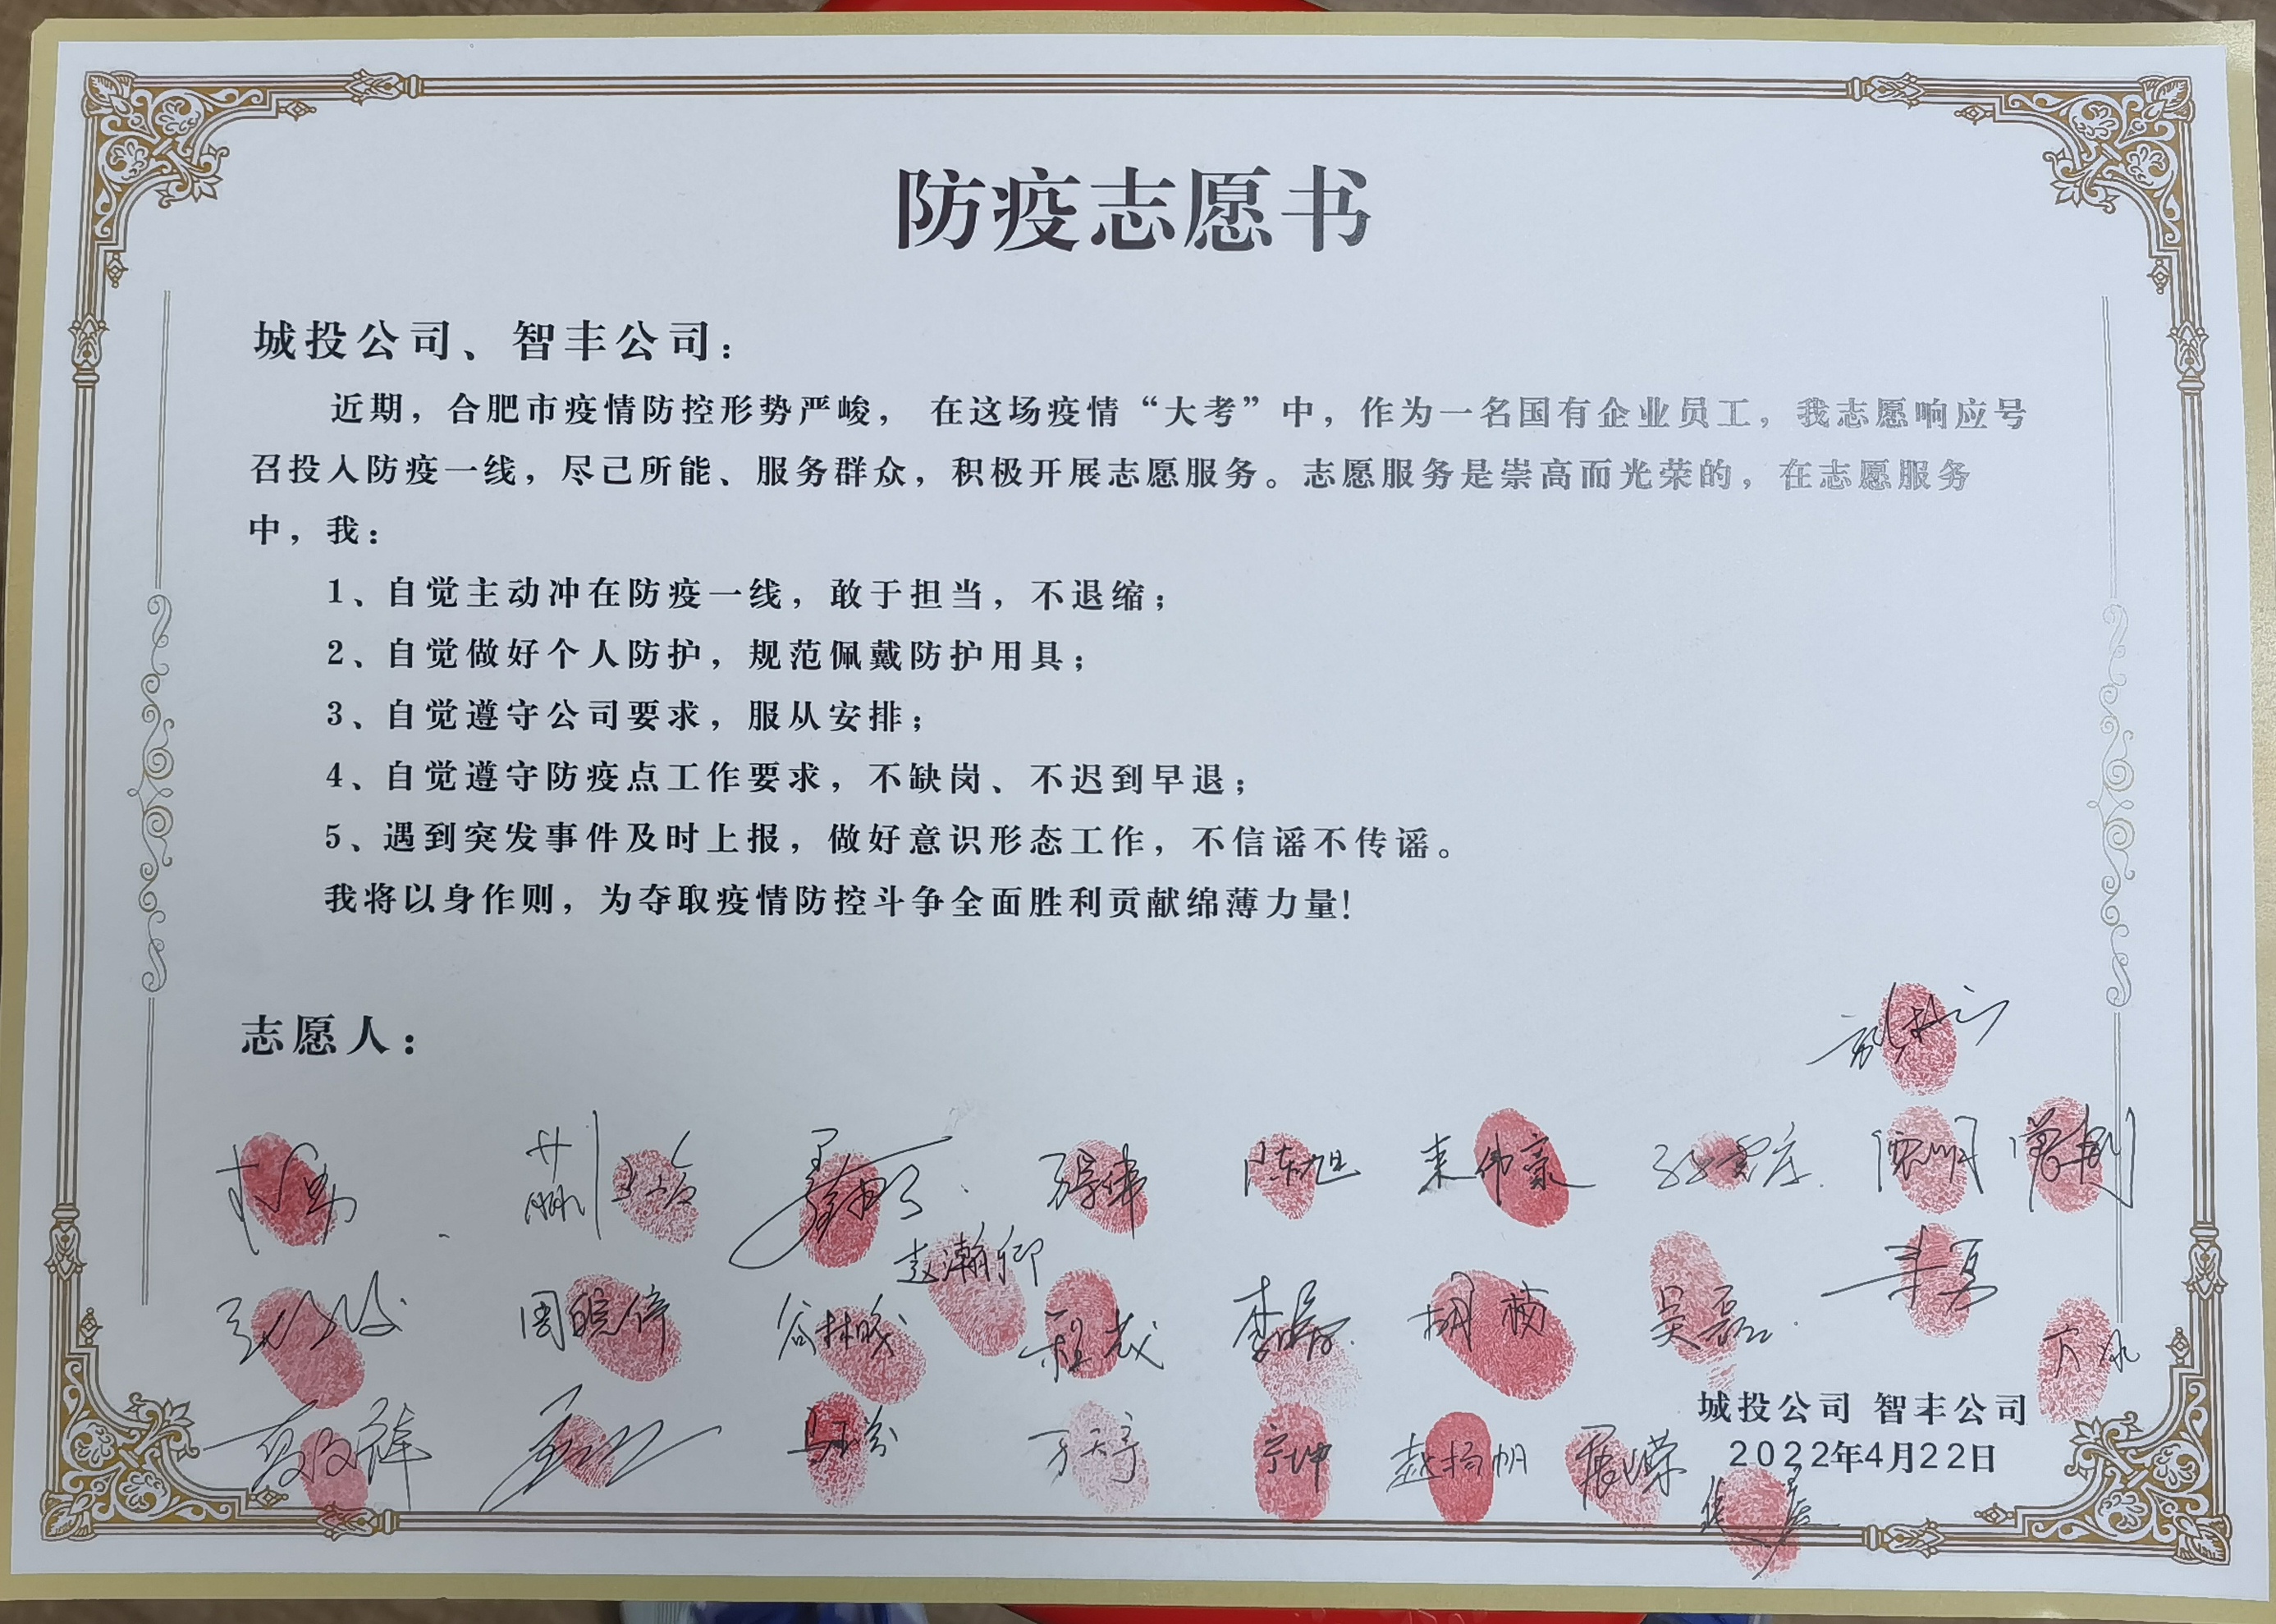 防疫志愿书
城投公司、智丰公司：
近期，合肥市疫情防控形势严峻， 在这场疫情“大考”中，作为一名国有企业员工，我志愿响应号
召投入防疫一线，尽己所能、服务群众，积极开展志愿服务。志愿服务是崇高而光荣的，在志愿服务
中，我：
1、自觉主动冲在防疫一线，敢于担当，不退缩；
2、自觉做好个人防护，规范佩戴防护用具；
3、自觉遵守公司要求，服从安排；
4、自觉遵守防疫点工作要求，不缺岗、不迟到早退；
5、遇到突发事件及时上报，做好意识形态工作，不信谣不传谣。
我将以身作则，为夺取疫情防控斗争全面胜利贡献绵薄力量！
志愿人：
陈旭
赵瀚卿
周皖倩
胡楠
吴磊
宁坤
赵杨帆
城投公司 智丰公司
2022年4月22日